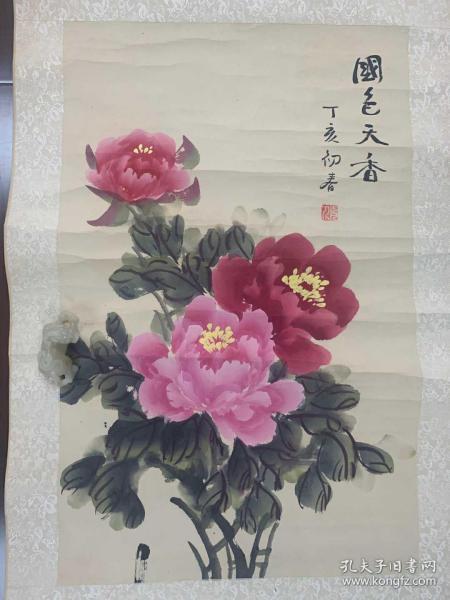 國色天香
丁亥初春
孔夫子旧书网
www.kongfz.com